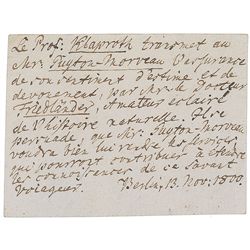 Le Prof. Klaproth transmet au
Mr. Guyton-Morveau l'assurance
de son sentiment d'estime et de
devouement, par Mr. le Docteur
Friedländer, amateur eclairé
de l'histoire naturelle. Il se
persuade, que Mr. Guyton-Morveau
voudra bien lui rendre les services
qui pourront contribuer à etendre
les connoissances de ce savant
voiageur. Berlin, 13. Nov. 1800.